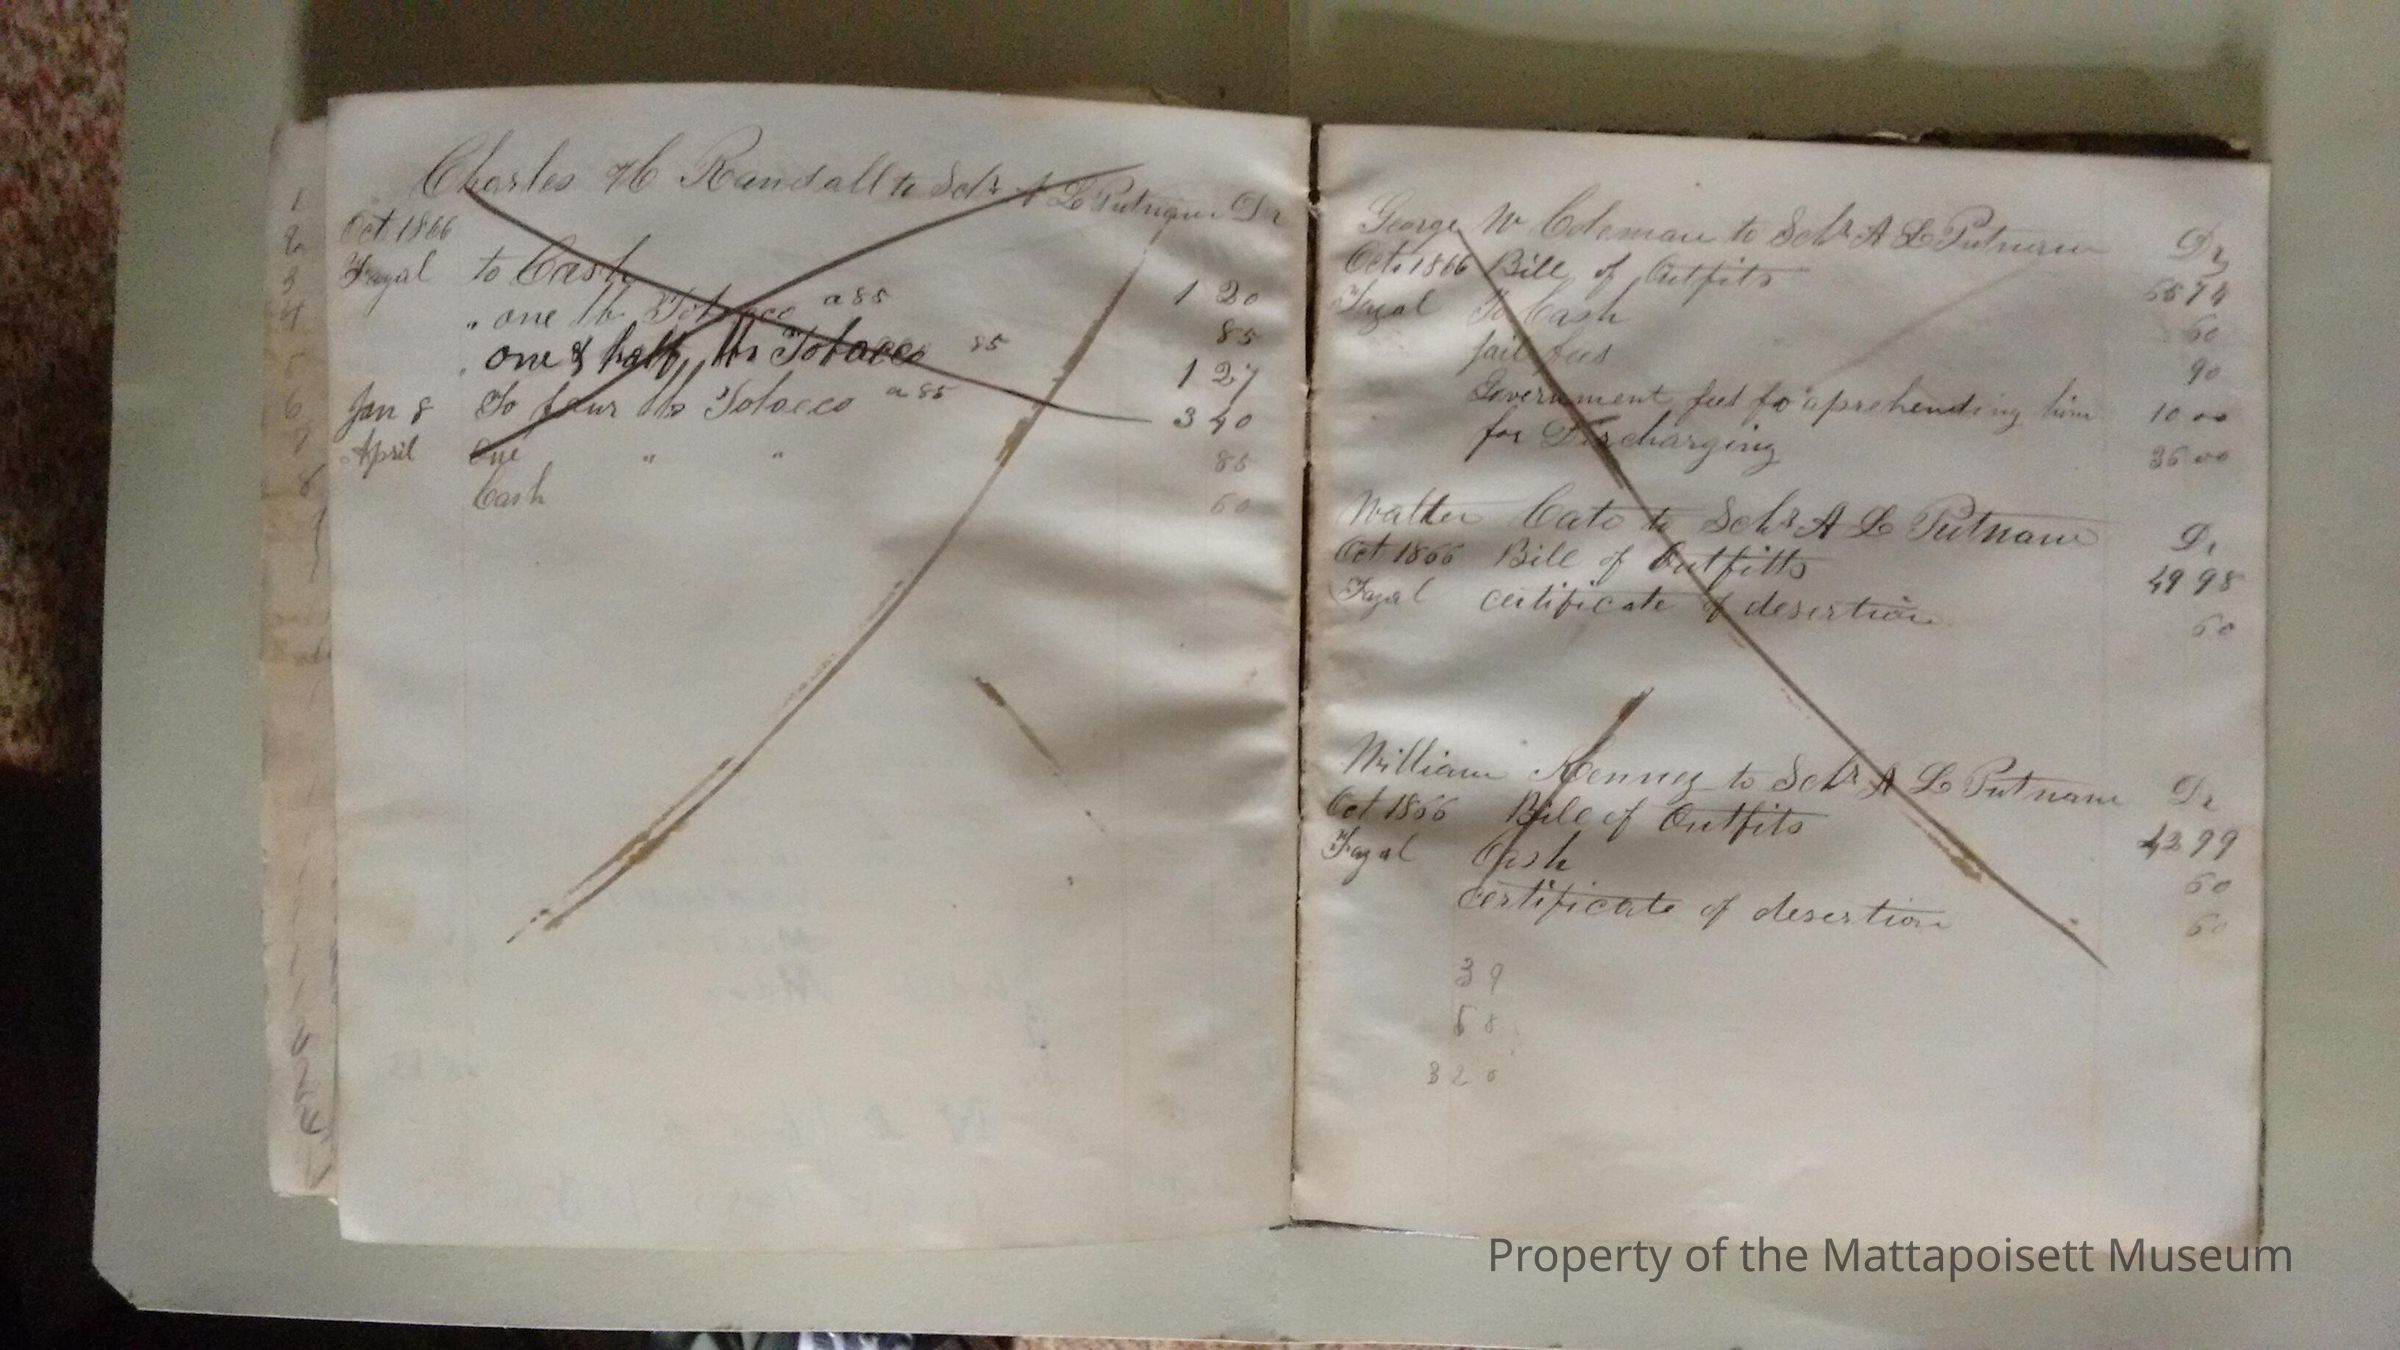 Charles H Randall to Schr A L Putnam Dr
Oct 1866
Fayal to Cash 1 20
" one lb Tobacco a 85 85
" one & half lbs Tobacco 85 1 27
Jan 8 To four lbs Tobacco a 85 3 40
April One " " 85
Cash 60
George W Coleman to Schr A L Putnam Dr
Oct 1866 Bill of Outfits 74
Fayal To Cash 60
jail fees 90
Government feed for aprehending him 10 00
for Discharging 36 00
Walter Cato to Schr A L Putnam Dr
Oct 1866 Bill of Outfitts 49 98
Fayal certificate of desertion 60
William Kenney to Schr A L Putnam Dr
Oct 1866 Bill of Outfits 42 99
Fayal Cash 60
certificate of desertion 60
39
58
320
Property of the Mattapoisett Museum